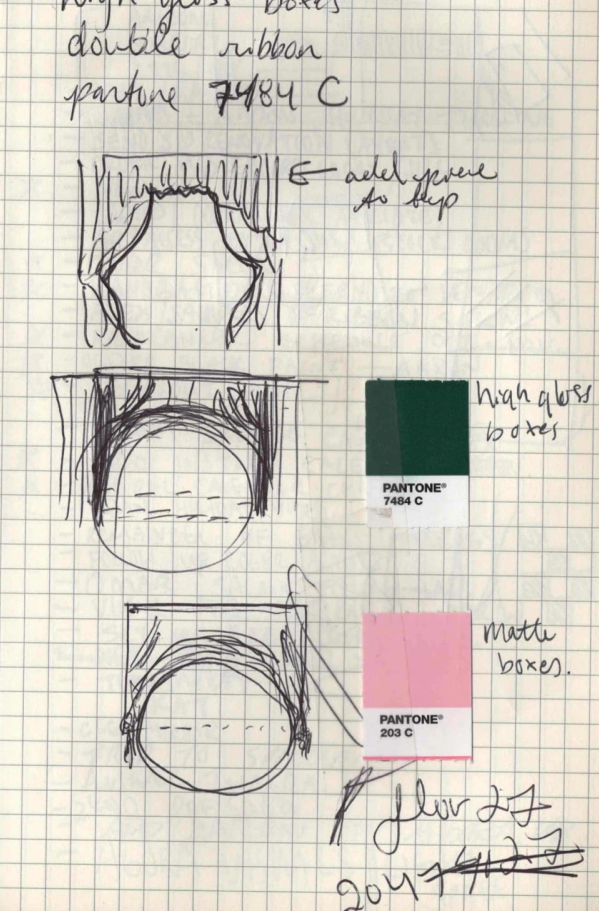 high gloss boxes
double ribbon
pantone 7484 C
← add
to
high gloss
boxes
PANTONE®
7484 C
matte
boxes.
PANTONE®
203 C
27
204